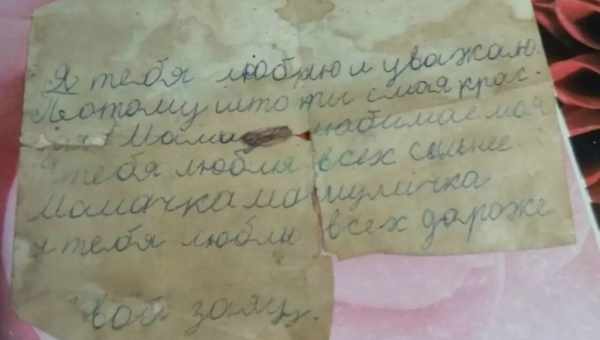 Я тебя люблю и уважаю.
Потому што ты самая крас.
Мама любимае моя
тебя люблю всех сильнее
Мамачка мамуличка
я тебя люблю всех дароже
вой заяц.